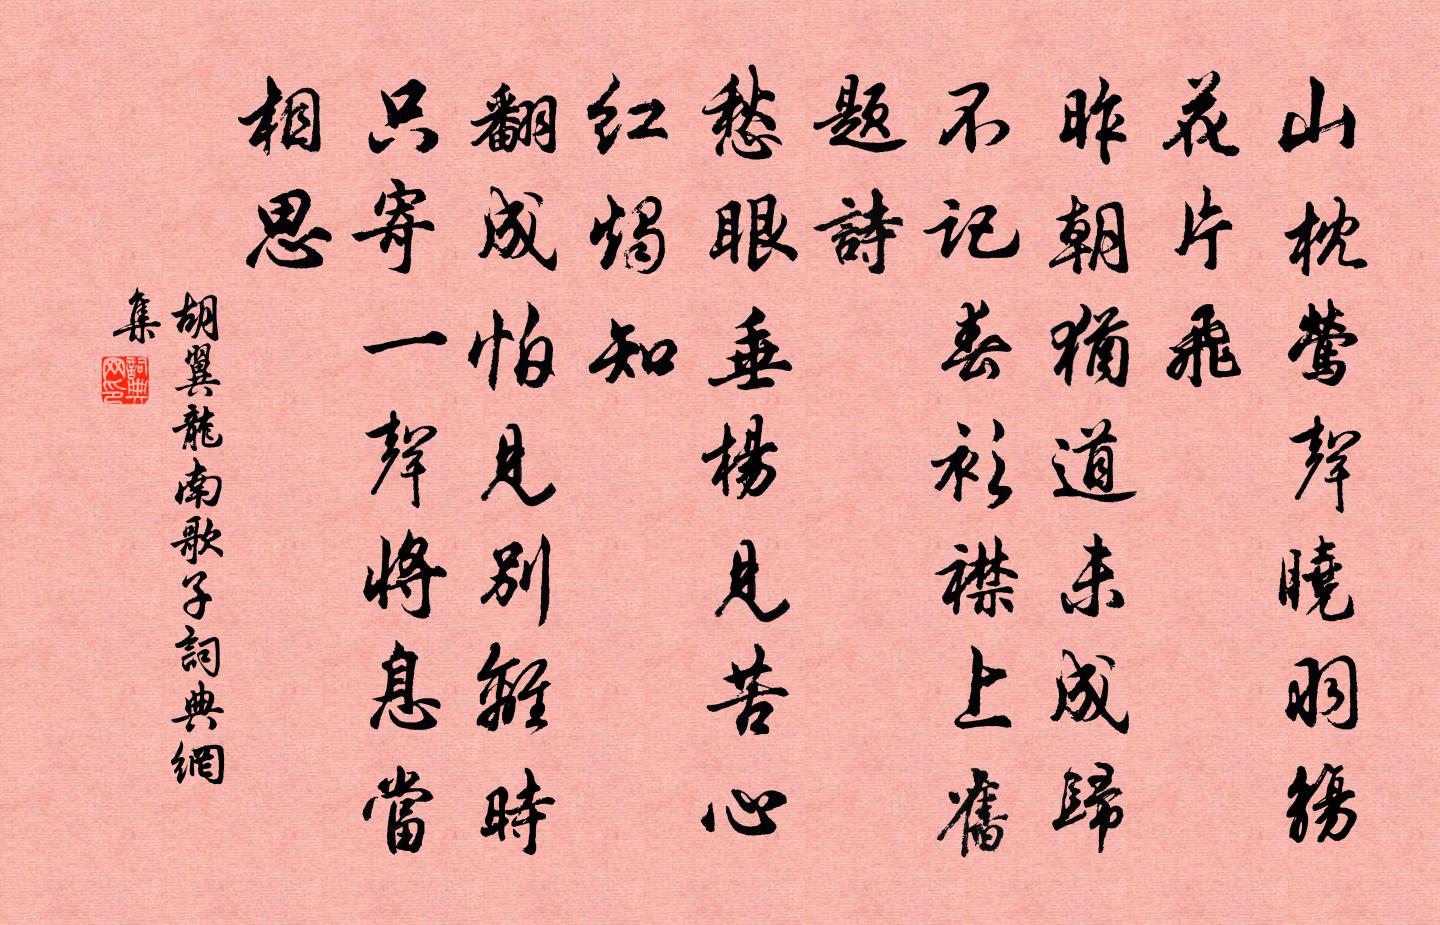 山枕鶯聲曉羽觴
花片飛
昨朝猶道未成歸
不記春衫襟上舊
題詩
愁眼垂楊見苦心
紅燭知
翻成怕見別離時
只寄一聲將息當
相思
胡翼龍南歌子詞典網
集
詞典网印